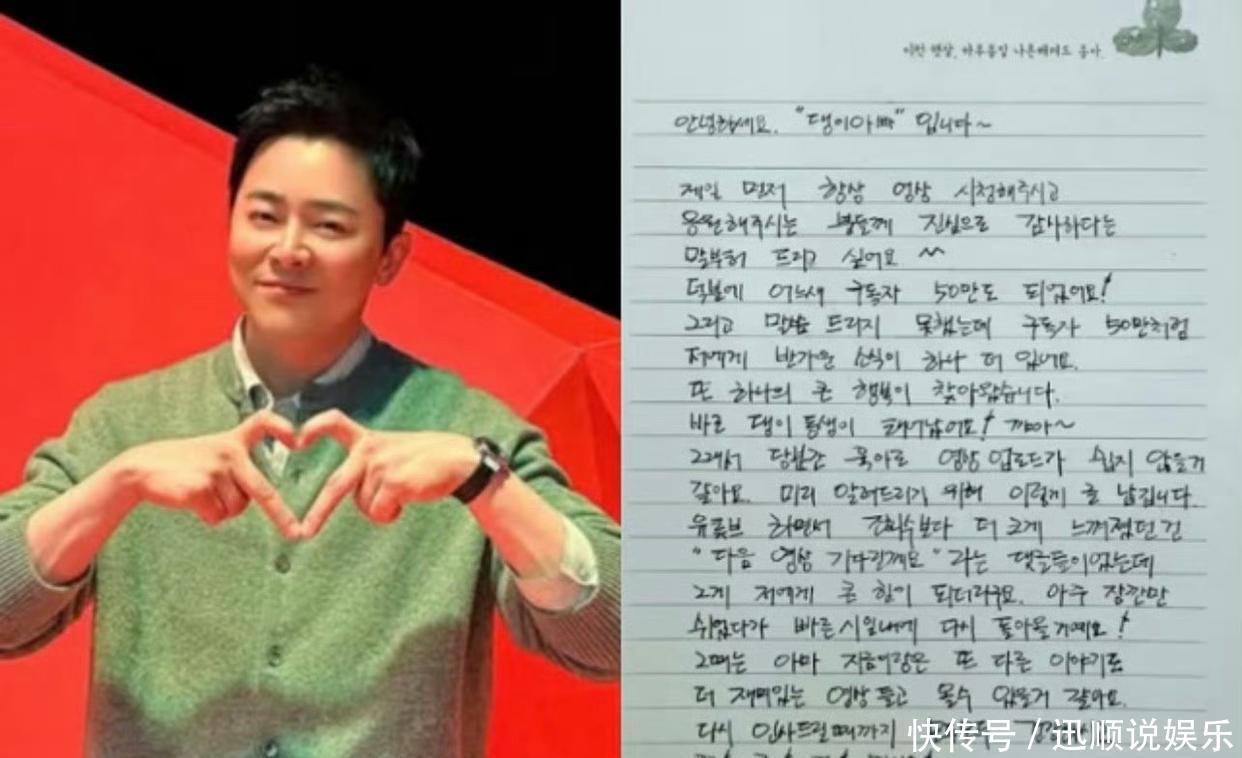 이런 햇살, 하루종일 나른해져도 좋아.
안녕하세요. "댕이아빠" 입니다~
제일 먼저 항상 영상 시청해주시고
응원해주시는 분들께 진심으로 감사하다는
말부터 드리고 싶어요 ^^
덕분에 어느새 구독자 50만도 되었어요!
그리고 말씀 드리지 못했는데 구독자 50만처럼
저에게 반가운 소식이 하나 더 있어요.
또 하나의 큰 행복이 찾아왔습니다.
바로 댕이 동생이 태어났어요! 꺄아~
그래서 당분간 육아로 영상 업로드가 쉽지 않을거
같아요. 미리 알려드리기 위해 이렇게 글 남깁니다.
유튜브 하면서 조회수보다 더 크게 느껴졌던 건
"다음 영상 기다릴께요" 라는 댓글들이었는데
그게 저에게 큰 힘이 되더라구요. 아주 잠깐만
쉬었다가 빠른시일내에 다시 돌아올거예요!
그때는 아마 지금이랑은 또 다른 이야기로
더 재미있는 영상 들고 올수 있을거 같아요.
다시 인사드릴때까지
快传号 / 迅顺说娱乐